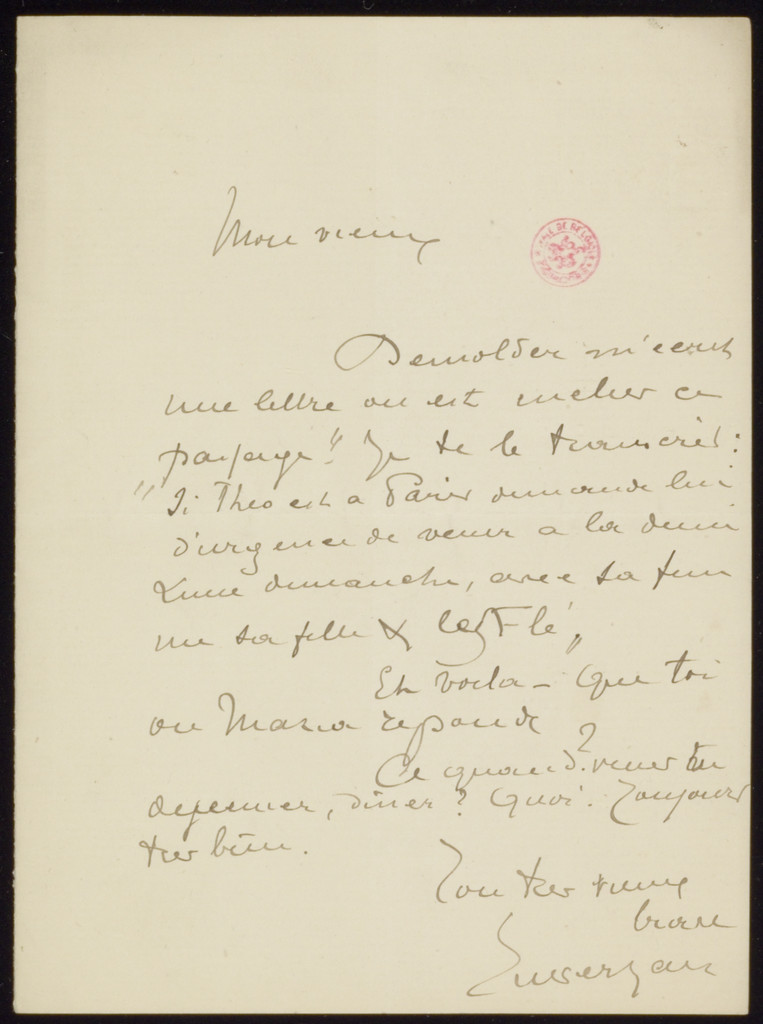 Mon vieux
Demolder m'écrit
une lettre ou est ce
passage" Je te le transcris :
"Si Theo est a Paris demande lui
d'urgence de venir a la demi
Lune dimanche, avec sa fem
me sa fille &
Et voila - Que toi
ou Maria réponde
Ce quand? viens tu
dejeuner, dîner? Quoi. Toujours
tres bien.
Ton tres vieux